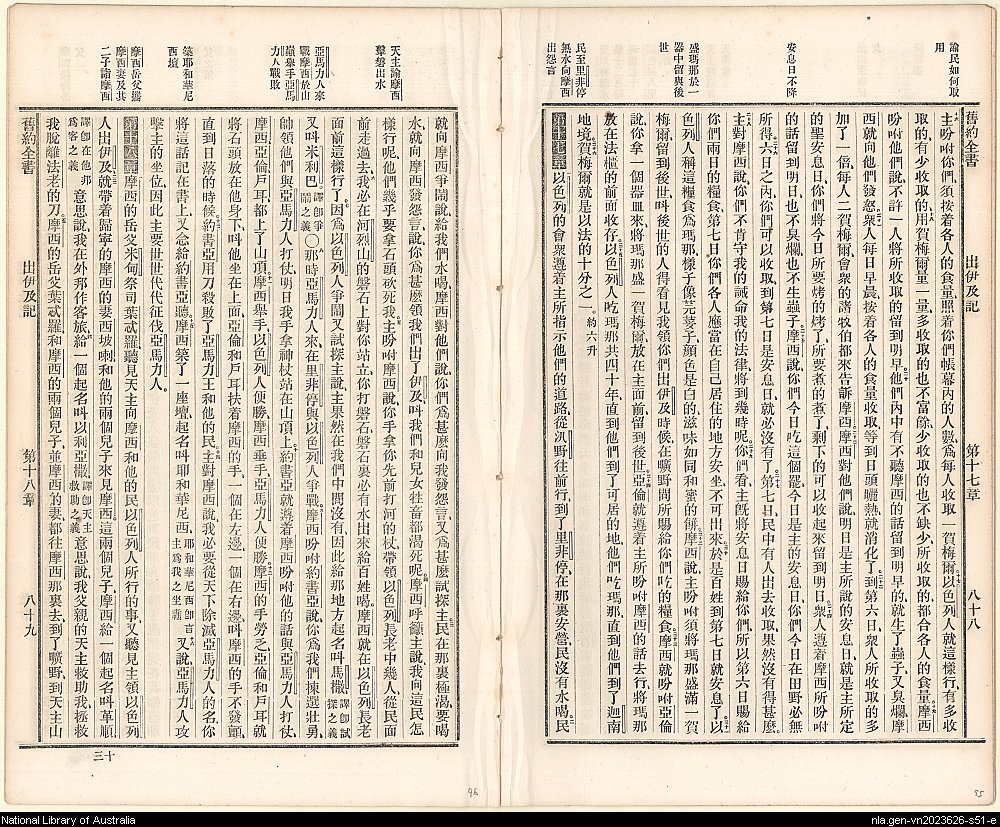 諭民如何取
用
安息日不降
盛瑪那於一
器中留與後
世
民至里非停
無水向摩西
出怨言
舊約全書 出伊及記 第十七章 八十八
主吩咐你們、須按着各人的食量、照着你們帳幕內的人數、爲每人收取一賀梅爾。以色列人就這樣行、有多收
取的、有少收取的。用賀梅爾量一量、多收取的也不富餘、少收取的也不缺少、所收取的、都合各人的食量。摩西
吩咐他們說、不許一人將所收取的留到明早。他們內中有不聽摩西的話、留到明早的、就生了蟲子、又臭爛、摩
西就向他們發怒。衆人每日早晨、按着各人的食量收取、等到日頭曬熱就消化了。到第六日、衆人所收取的多
加了一倍、每人二賀梅爾、會衆的諸牧伯都來告訴摩西。摩西對他們說、明日是主所說的安息日、就是主所定
的聖安息日、你們將今日所要烤的烤了、所要煮的煮了、剩下的可以收起來、留到明日。衆人遵着摩西所吩咐
的話留到明日、也不臭爛、也不生蟲子。摩西說、你們今日吃這個罷、今日是主的安息日、你們今日在田野必無
所得。六日之內、你們可以收取、到第七日是安息日、就必沒有了。第七日民中有人出去收取、果然沒有得甚麼。
主對摩西說、你們不肯守我的誡命、我的法律、將到幾時呢。你們看、主旣將安息日賜給你們、所以第六日賜給
你們兩日的糧食、第七日你們各人應當在自己居住的地方安坐、不可出來。於是百姓到第七日就安息了。以
色列人稱這糧食爲瑪那、樣子像芫荽子、顏色是白的、滋味如同和蜜的餅。摩西說、主吩咐、須將瑪那盛滿一賀
梅爾、留到後世、叫後世的人得看見我領你們出伊及時候、在曠野間所賜給你們吃的糧食。摩西就吩咐亞倫
說、你拿一個器皿來、將瑪那盛一賀梅爾、放在主面前、留到後世。亞倫就遵着主所吩咐摩西的話去行、將瑪那
放在法櫃的前面收存。以色列人吃瑪那共四十年、直到他們到了可居的地、他們吃瑪那、直到他們到了迦南
地境。賀梅爾就是以法的十分之一。約六升
第十七章 以色列的會衆遵着主所指示他們的道路、從汎野往前行、到了里非停、在那裏安營、民沒有水喝。民
天主諭摩西
擊磐出水
亞馬力人來
戰摩西於山
巔舉手亞馬
力人戰敗
築耶和華尼
西壇
摩西岳父攜
摩西妻及其
二子詣摩西
就向摩西爭鬧說、給我們水喝、摩西對他們說、你們爲甚麼向我發怨言、又爲甚麼試探主。民在那裏極渴、要喝
水、就向摩西發怨言說、你爲甚麼領我們出了伊及、叫我們和兒女牲畜都渴死呢。摩西呼籲主說、我向這民怎
樣行呢、他們幾乎要拿石頭砍死我。主吩咐摩西說、你手拿你先前打河的杖、帶領以色列長老中幾人、從民面
前走過去。我必在河烈山的磐石上、對你站立、你打磐石、磐石裏必有水出來給百姓喝、摩西就在以色列長老
面前這樣行了。因爲以色列人爭鬧、又試探主說、主果然在我們中間沒有、因此給那地方起名叫馬撒、譯卽試探之義
又叫米利巴。譯卽爭鬧之義 ○那時亞馬力人來在里非停、與以色列人爭戰。摩西吩咐約書亞說、你爲我們揀選壯勇、
帥領他們與亞馬力人打仗、明日我手拿神杖站在山頂上。約書亞就遵着摩西吩咐他的話、與亞馬力人打仗、
摩西亞倫戶耳都上了山頂。摩西舉手、以色列人便勝、摩西垂手、亞馬力人便勝。摩西的手勞乏、亞倫和戶耳就
將石頭放在他身下、叫他坐在上面、亞倫和戶耳扶着摩西的手、一個在左邊、一個在右邊、叫摩西的手不發顫、
直到日落的時候。約書亞用刀殺敗了亞馬力王和他的民。主對摩西說、我必要從天下除滅亞馬力人的名、你
將這話記在書上、又念給約書亞聽。摩西築了一座壇、起名叫耶和華尼西、耶和華尼西卽言主爲我之坐纛 又說、亞馬力人攻
擊主的坐位、因此主要世世代代征伐亞馬力人。
第十八章 摩西的岳父、米甸祭司葉忒羅、聽見天主向摩西和他的民以色列人所行的事、又聽見主領以色列
人出伊及、就帶着歸寧的摩西的妻西坡喇、和他的兩個兒子來見摩西、這兩個兒子、摩西給一個起名叫革順、
譯卽在他邦爲客之義 意思說、我在外邦作客旅。給一個起名叫以利亞撒、譯卽天主救助之義 意思說、我父親的天主救助我、拯救
我脫離法老的刀。摩西的岳父葉忒羅和摩西的兩個兒子、並摩西的妻、都往摩西那裏去、到了曠野、到天主山
舊約全書 出伊及記 第十八章 八十九
三十
96
95
National Library of Australia
nla.gen-vn2023626-s51-e